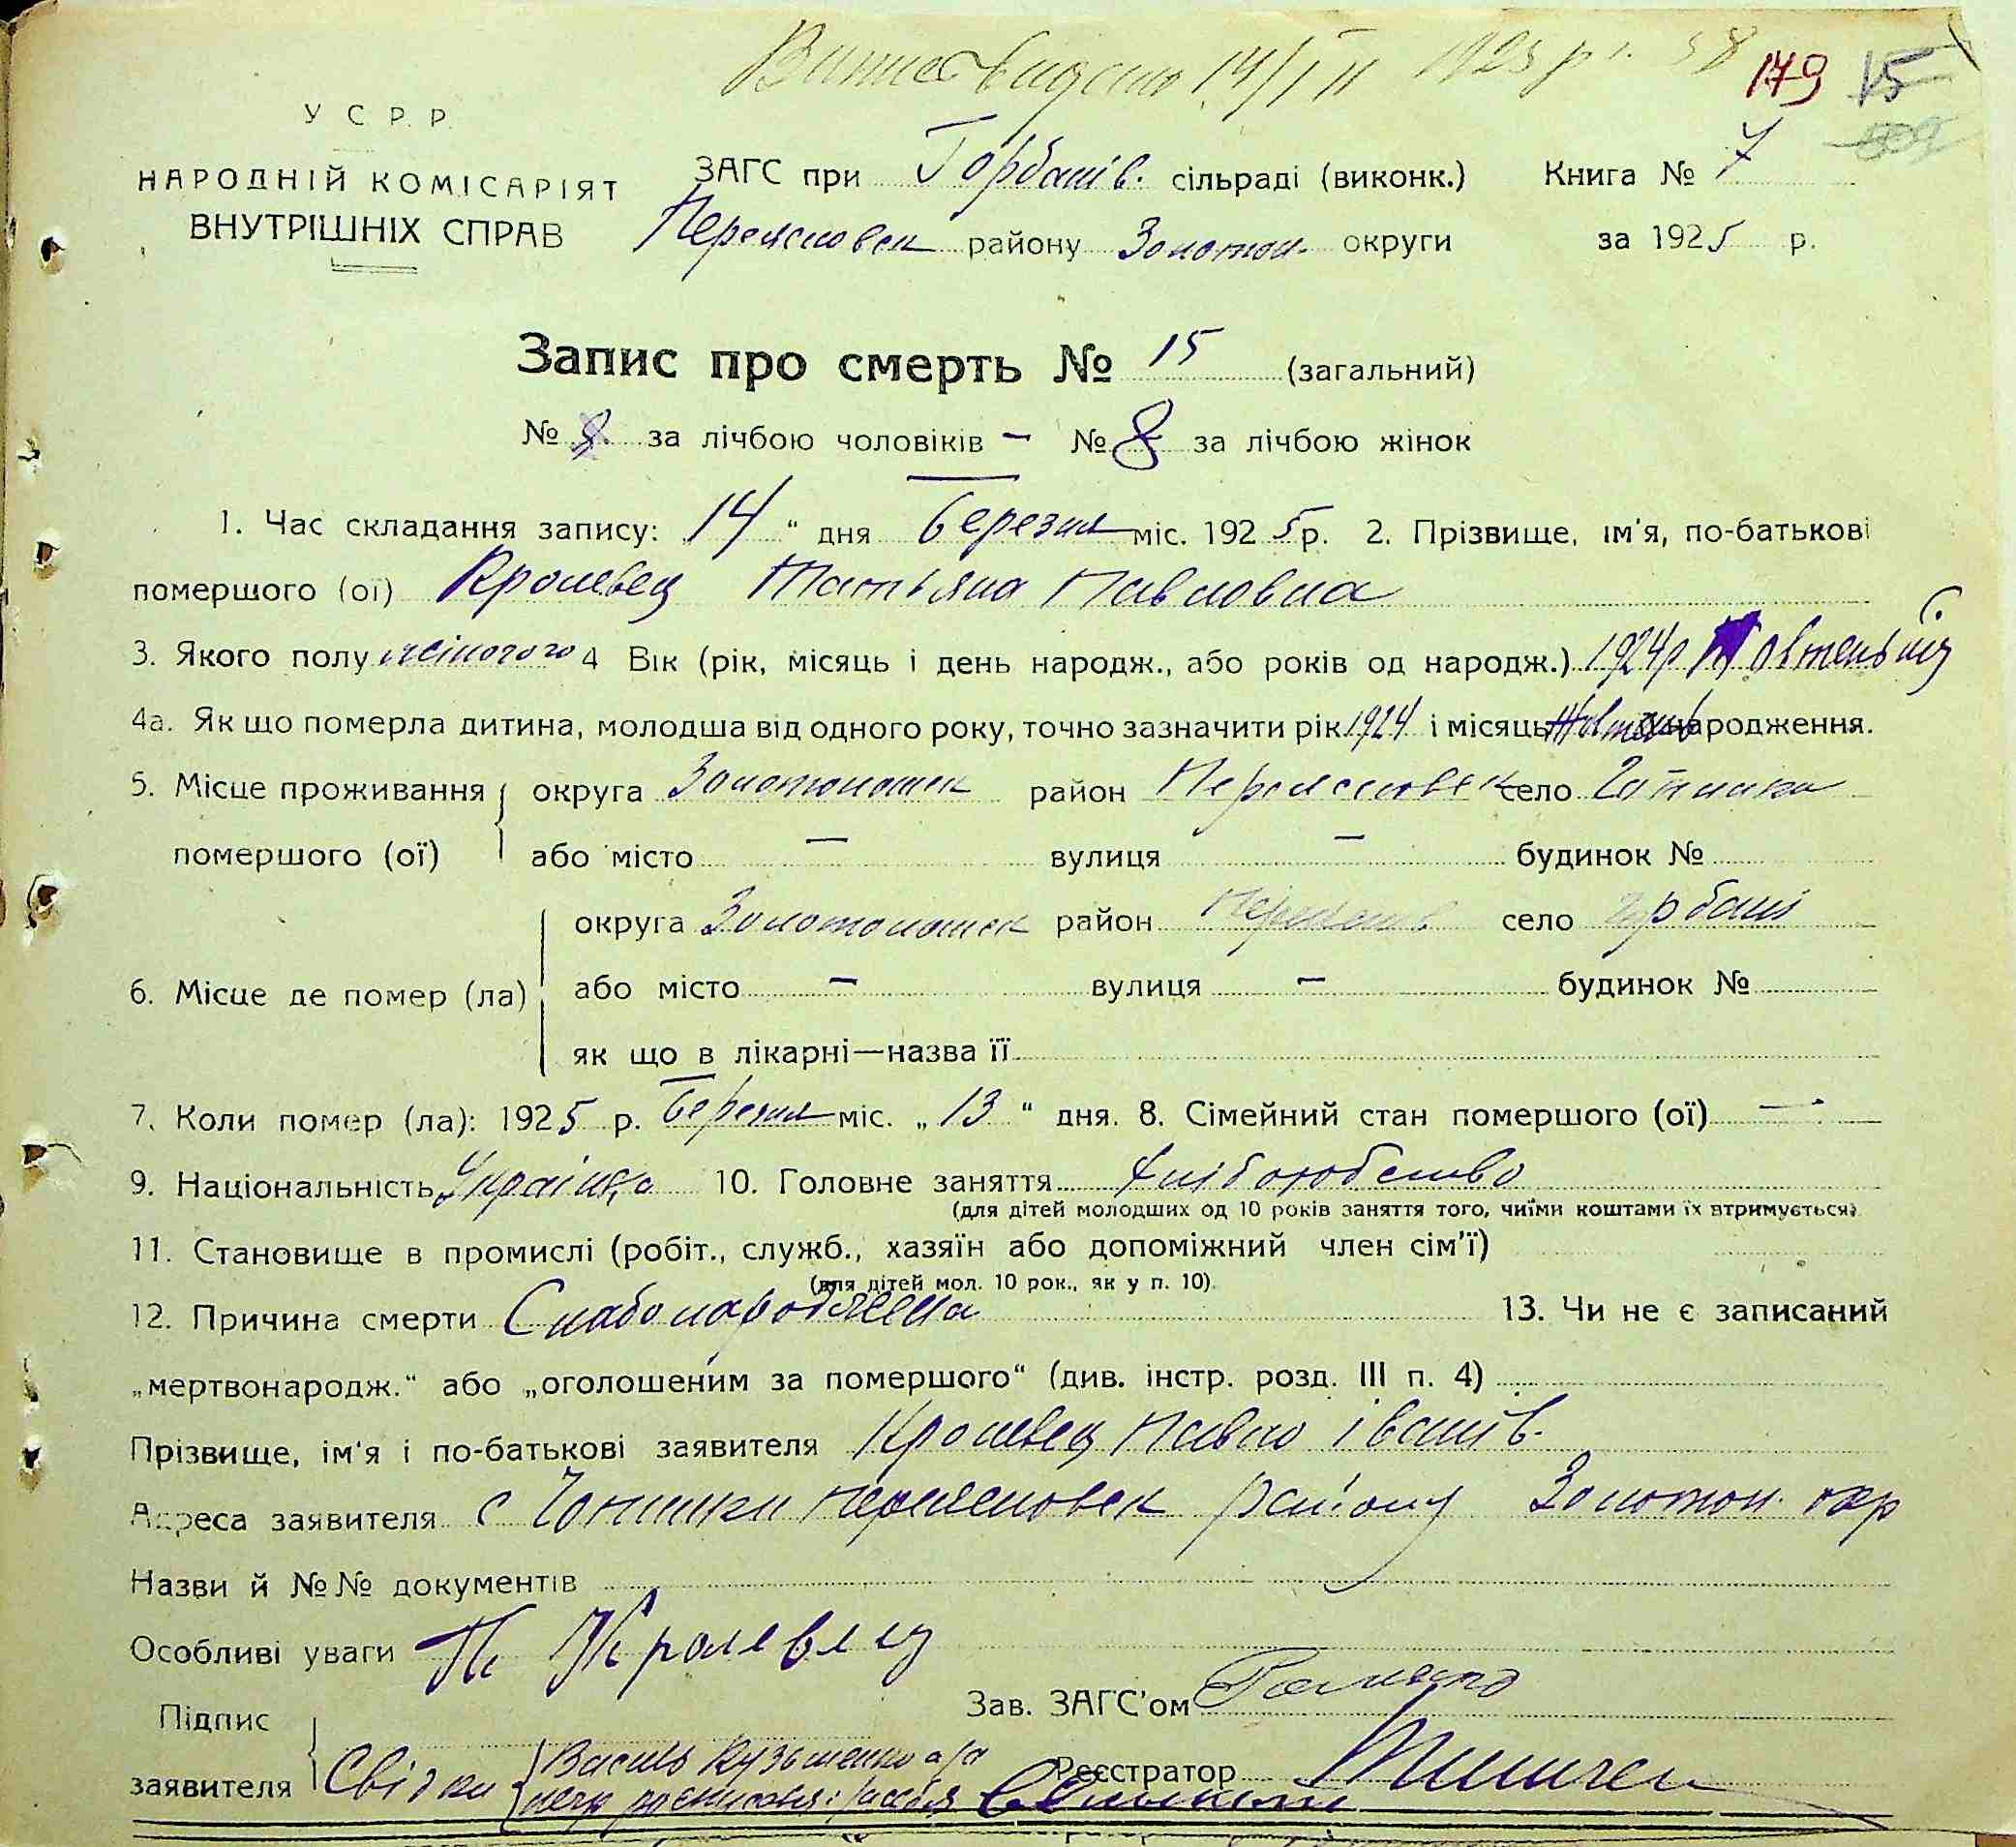 179 15
У С Р. Р.
НАРОДНІЙ КОМІСАРІЯТ
ВНУТРІШНІХ СПРАВ
ЗАГС при Горбанів. сільраді (виконк.) Книга № 7
Переясловск району Золотон. округи за 1925 р.
Запис про смерть № 15 (загальний)
№ 8 за лічбою чоловіків — № 8 за лічбою жінок
1. Час складання запису: 14 " дня березня міс. 1925 р. 2. Прізвище, ім'я, по-батькові
помершого (ої) Кролевец Татьяна Павловна
3. Якого полу жіночого 4 Вік (рік, місяць і день народж., або років од народж.) 1924 р Жовтень
4а. Як що померла дитина, молодша від одного року, точно зазначити рік 1924 і місяць Жовтень народження.
5. Місце проживання округа Золотоношск район Переясловск село
помершого (ої) або місто — вулиця — будинок №
округа Золотоношск район село Горбані
6. Місце де помер (ла) або місто — вулиця — будинок №
як що в лікарні—назва її
7. Коли помер (ла): 1925 р. березня міс. „ 13 " дня. 8. Сімейний стан помершого (ої) —
9. Національність Українка 10. Головне заняття
(для дітей молодших од 10 років заняття того, чиїми коштами їх втримується)
11. Становище в промислі (робіт., служб., хазяїн або допоміжний член сім'ї)
(для дітей мол. 10 рок., як у п. 10).
12. Причина смерти Слабонарожденна 13. Чи не є записаний
„мертвонародж." або „оголошеним за помершого" (див. інстр. розд. III п. 4)
Прізвище, ім'я і по-батькові заявителя Кролевец Павло Іванів.
Адреса заявителя с Переясловск району Золотон. окр
Назви й №№ документів
Особливі уваги П. Кролевец
Підпис Зав. ЗАГС'ом
заявителя Свідки Василь Кузьменко Реєстратор